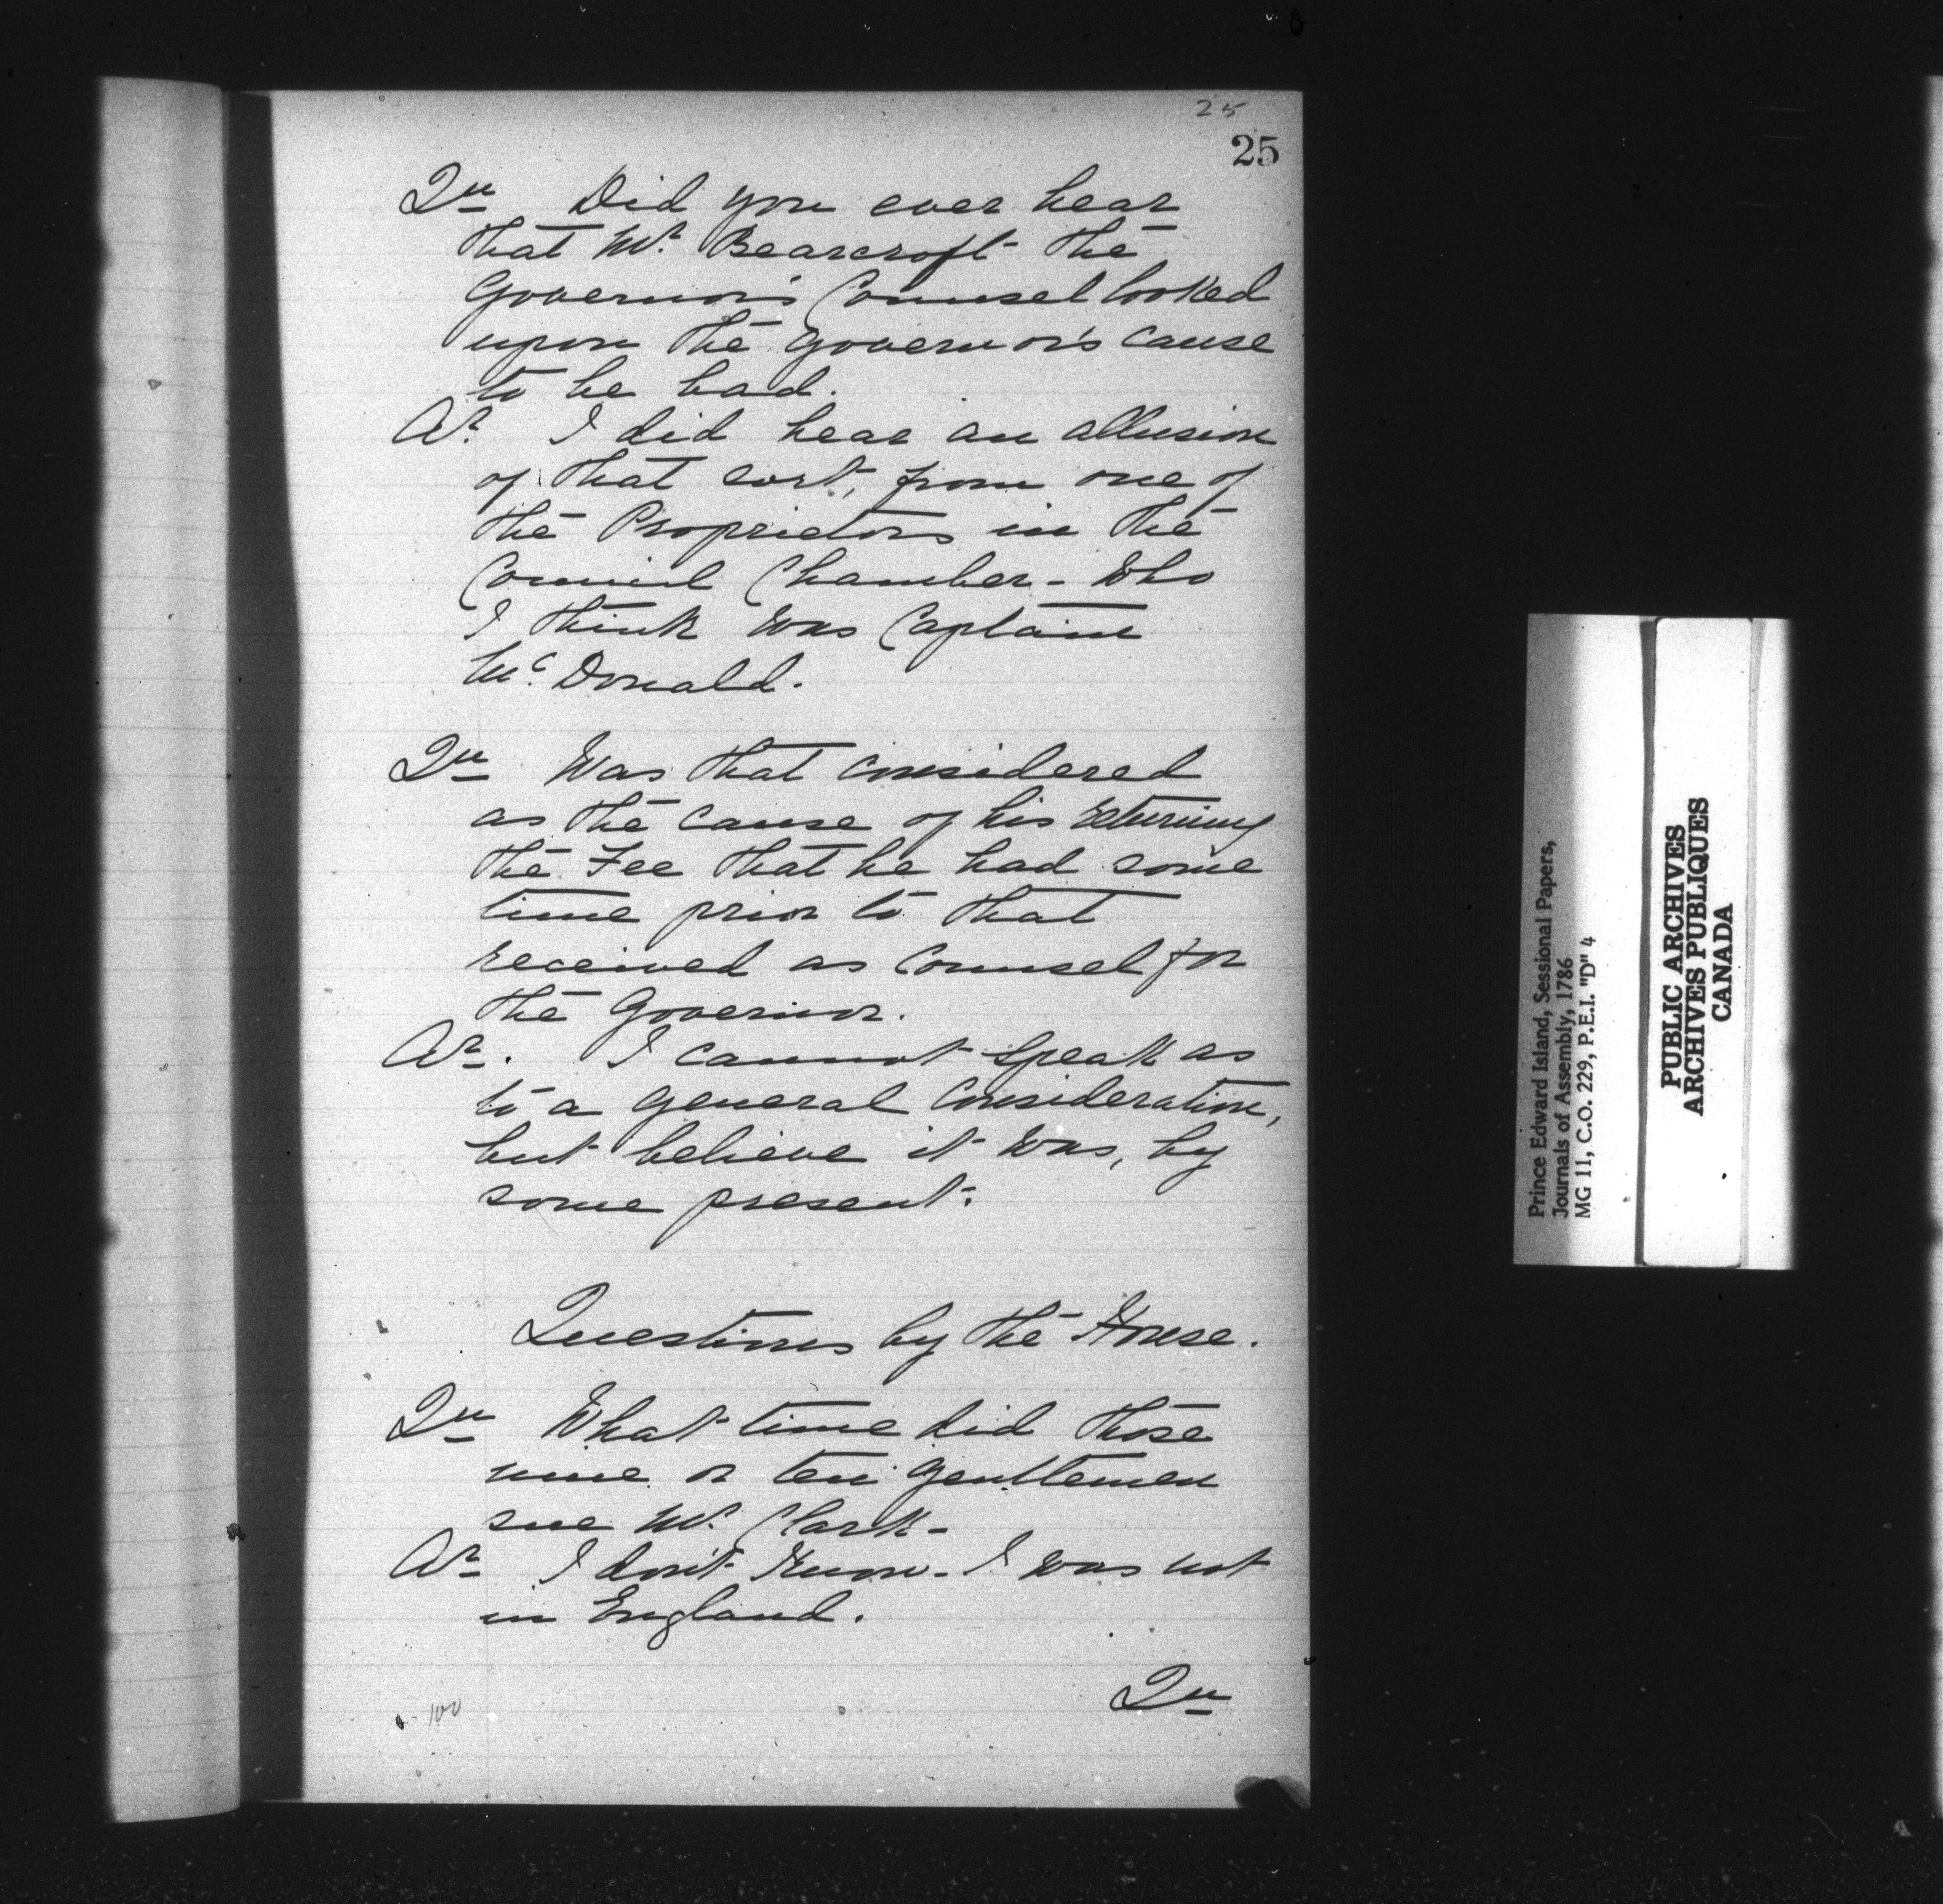 25
25
Qu Did you ever hear
that Mr. Bearcroft the
Governor's Counsel looked
upon the Governor's cause
to be bad.
Ar. I did hear an allusion
of that sort, from one of
the Proprietors in the
Council Chamber - who
I think was Captain
McDonald.
Qu Was that considered
as the cause of his returning
the Fee that he had some
time prior to that
received as Counsel for
the Governor.
Ar. I cannot speak as
to a general consideration,
but believe it was, by
some present.
Questions by the House.
Qu What time did those
nine or ten Gentlemen
sue Mr. Clark -
Ar I don't know - I was not
in England.
Qu
100
Prince Edward Island, Sessional Papers,
Journals of Assembly, 1786
MG 11, C.O. 229, P.E.I. "D" 4
PUBLIC ARCHIVES
ARCHIVES PUBLIQUES
CANADA